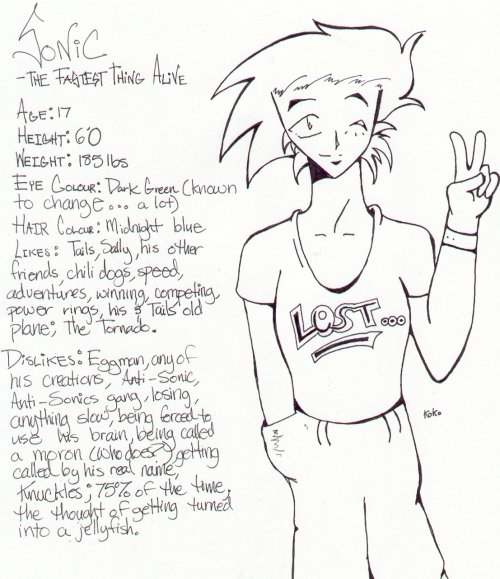 Sonic
-The Fastest Thing Alive
Age: 17
Height: 6'0
Weight: 185 lbs
Eye Colour: Dark Green (known
to change... a lot)
Hair Colour: Midnight blue
Likes: Tails, Sally, his other
friends, chili dogs, speed,
adventures, winning, competing,
power rings, his & Tails' old
plane; The Tornado.
Dislikes: Eggman, any of
his creations, Anti-Sonic,
Anti-Sonics gang, losing,
anything slow, being forced to
use his brain, being called
a moron (who does?), getting
called by his real name,
Knuckles; 75% of the time,
the thought of getting turned
into a jellyfish.
LOST...
KoKo